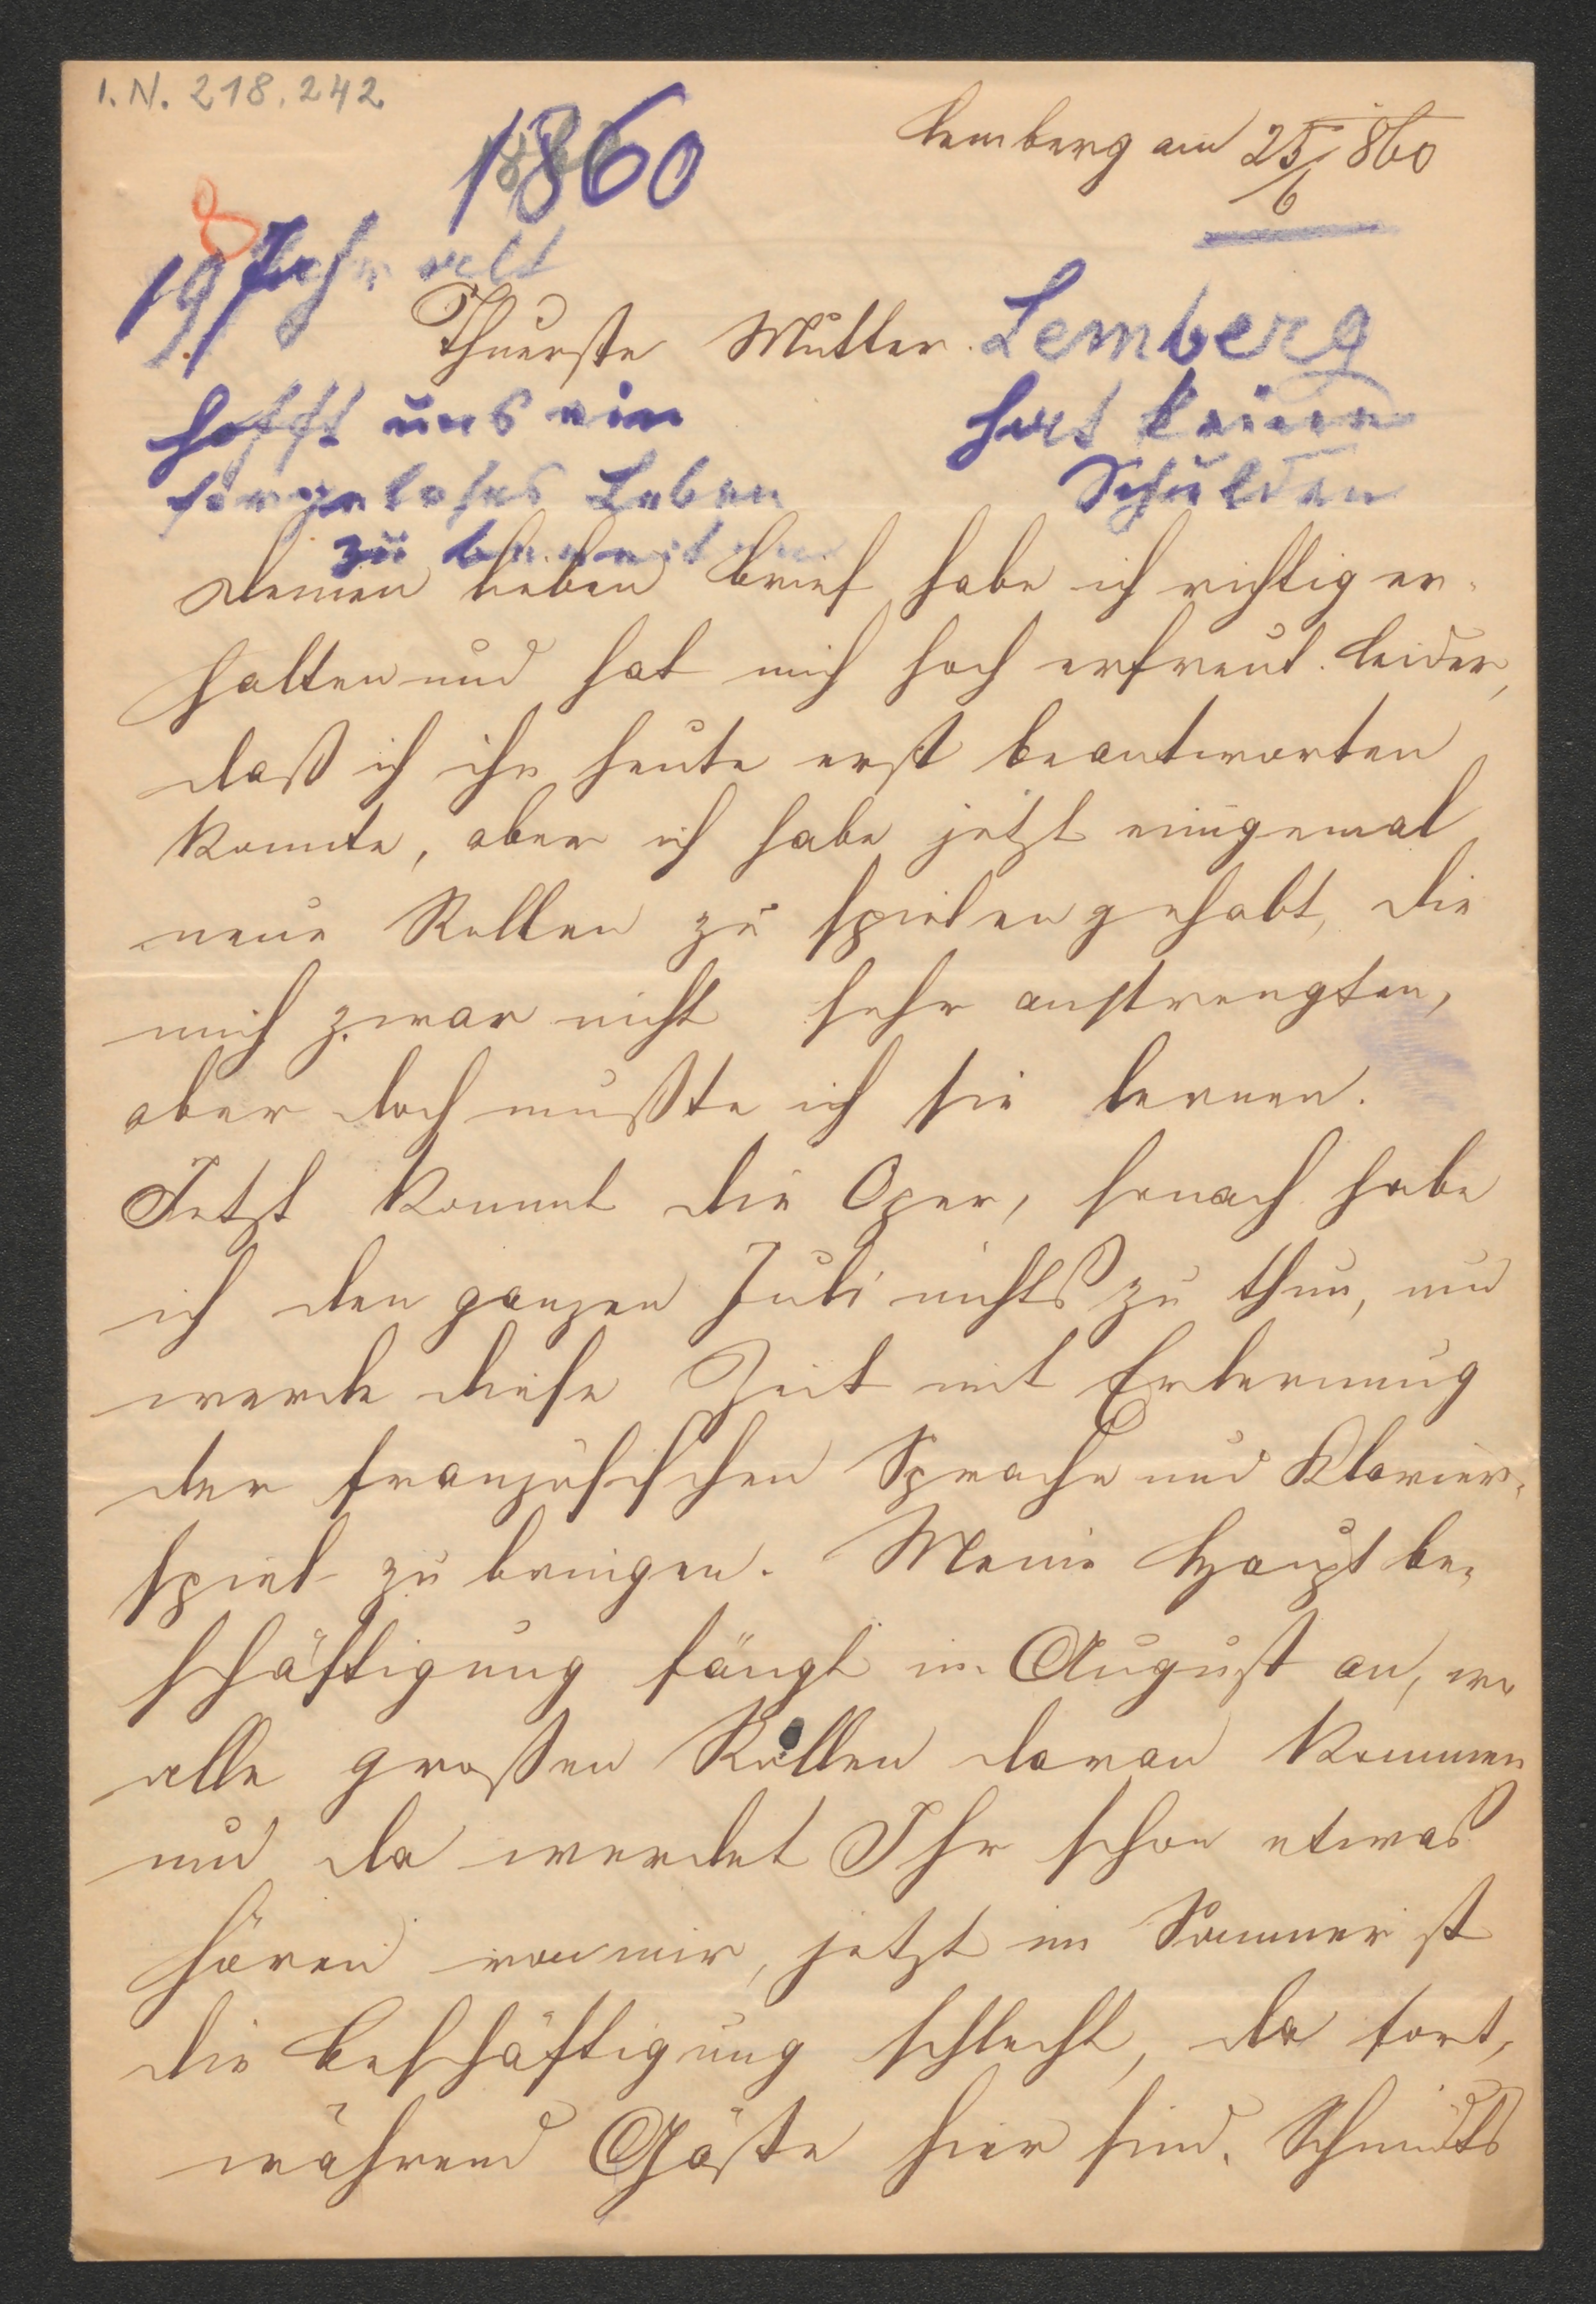 I. N. 218.242
1860
Lemberg am 25/6 860
8
19 Jahr alt
Theuerste Mutter.
Lemberg
hofft uns ein
hat keine
sorgeloses Leben
Schulden
zu bereiten
Deinen lieben Brief habe ich richtig er-
halten und hat mich hoch erfreut. Leider,
daß ich ihn heute erst beantworten
konnte, aber ich habe jetzt einigemal
neue Rollen zu spielen gehabt, die
mich zwar nicht sehr anstrengten,
aber doch mußte ich sie lernen.
Jetzt kommt die Oper, sonach habe
ich den ganzen Juli nichts zu thun, und
werde diese Zeit mit Erlernung
der französischen Sprache und Klavier-
spiel zu bringen. Meine Haupt be-
schäftigung fängt im August an, wo
alle großen Rollen daran kommen
und da werdet Ihr schon etwas
hören von mir, jetzt im Sommer ist
die Beschäftigung schlecht, da fort-
während Gäste hier sind. Schmidts